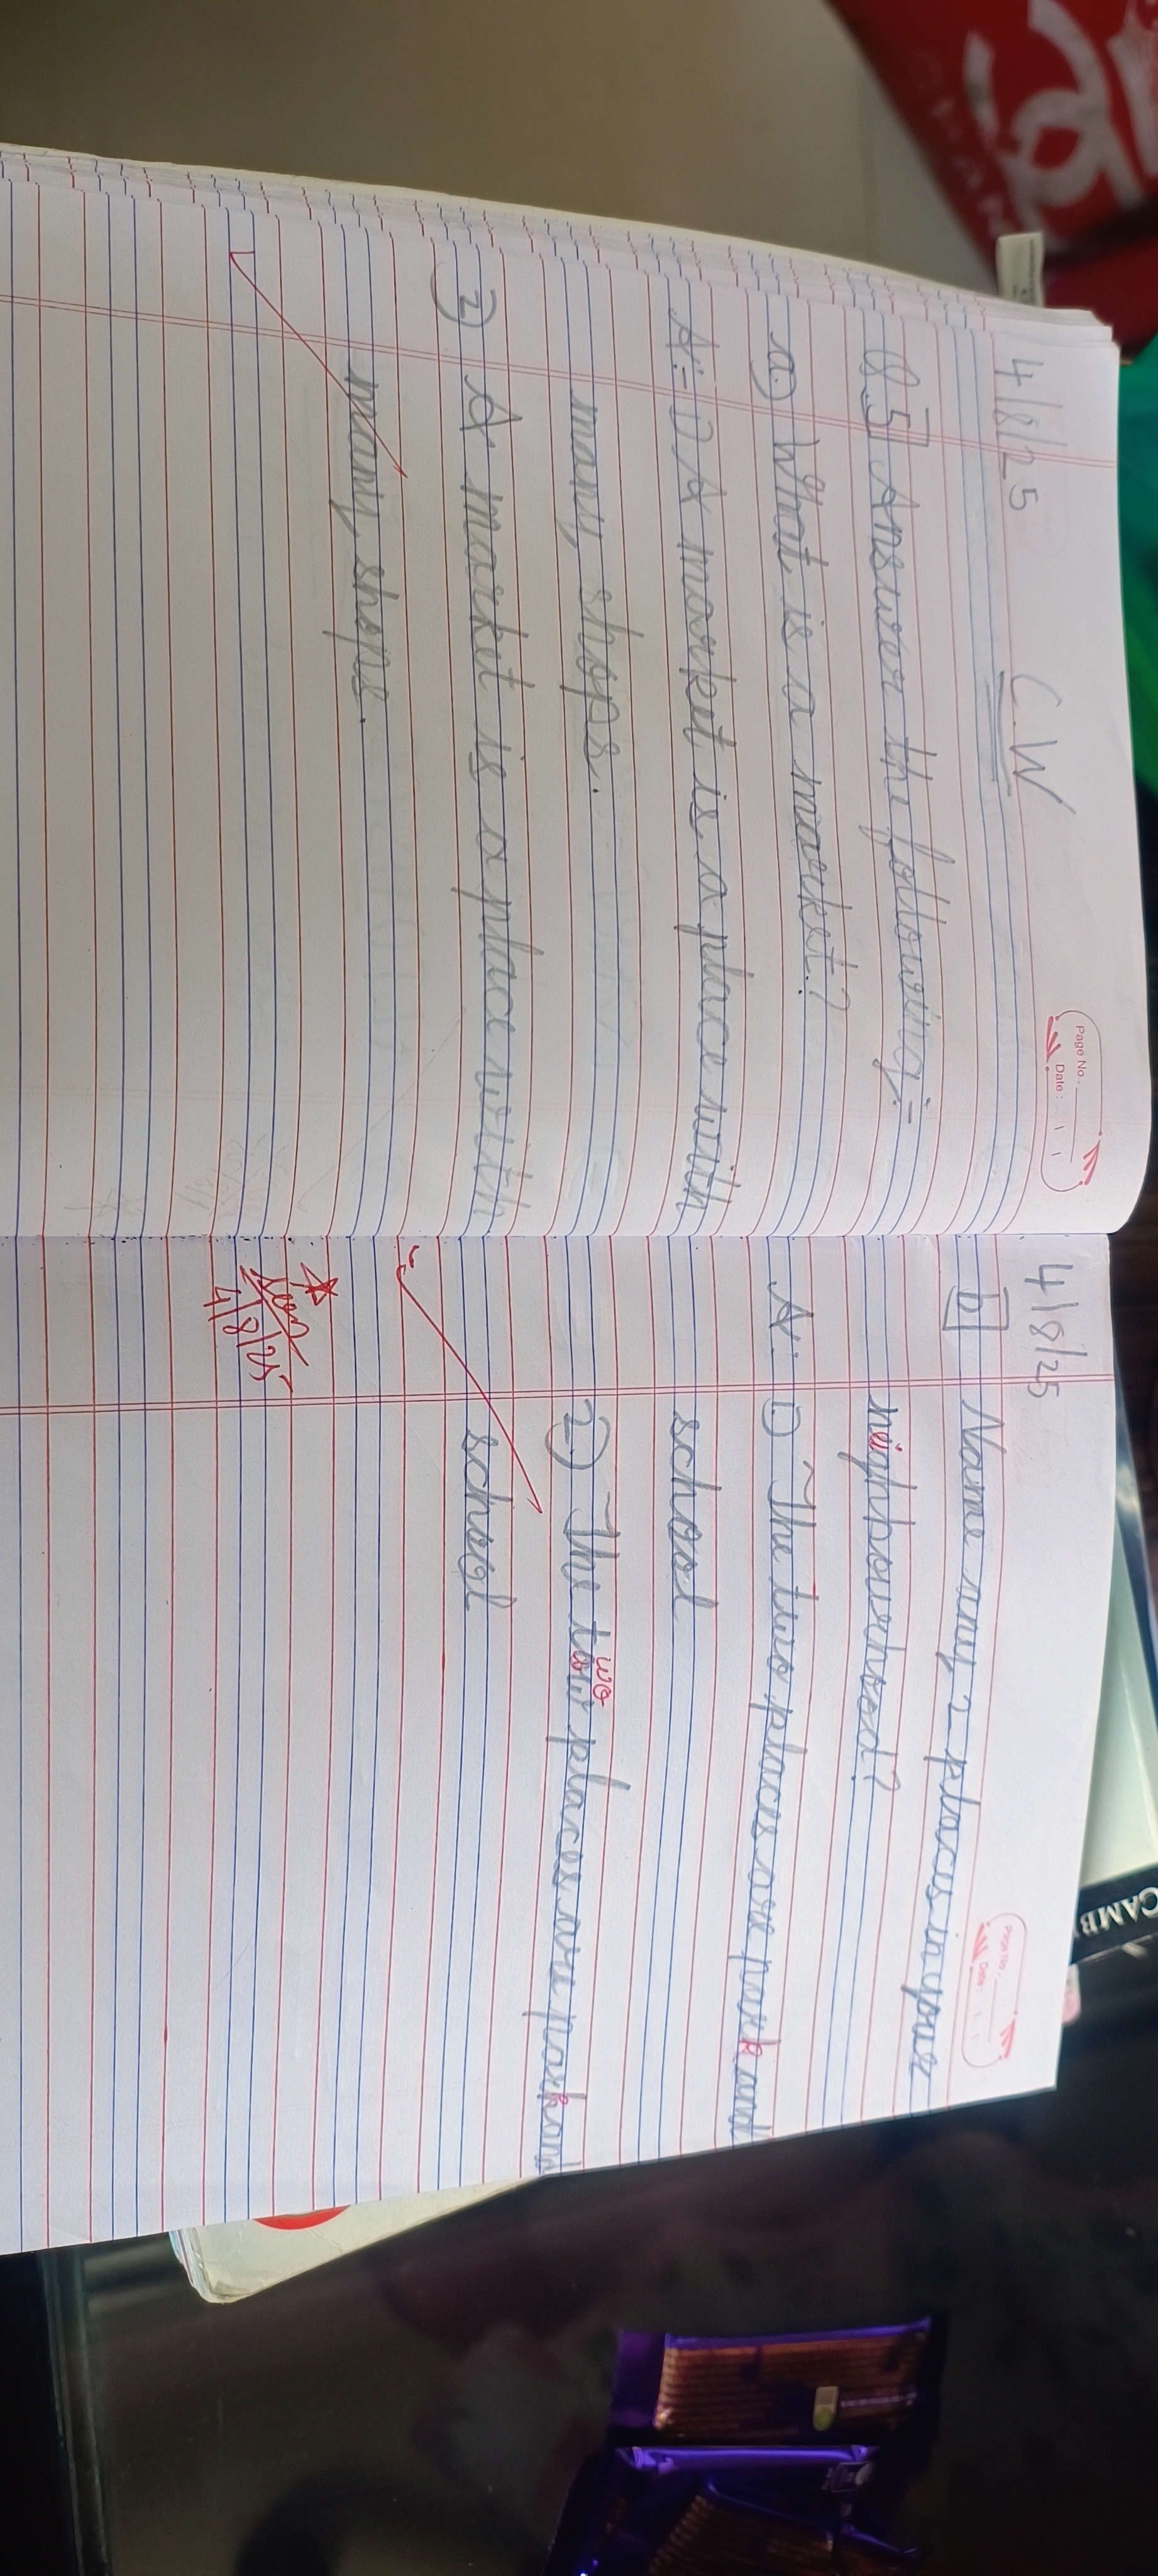 4/8/25
C.W
Page No.
Date:
Q.5 Answer the following:-
a) What is a market?
A:- 1) A market is a place with
many shops.
2) A market is a place with
many shops.
4/8/25
Page No.
Date:
b Name any 2 places in your
neighbourhood?
A: 1) The two places are park and
school
2) The tow places are park and
wo
school
Seen
4/8/25
CAMB